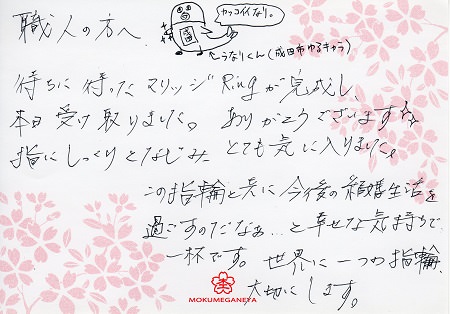 職人の方へ
カッコイイなり。
←うなりくん(成田市ゆるキャラ)
待ちに待ったマリッジRingが完成し、
本日受け取りました。ありがとうございます
指にしっくりとなじみとても気に入りました。
この指輪と共に今後の結婚生活を
過ごすのだなぁ…と幸せな気持ちで
一杯です。世界に一つの指輪、
大切にします。
MOKUMEGANEYA